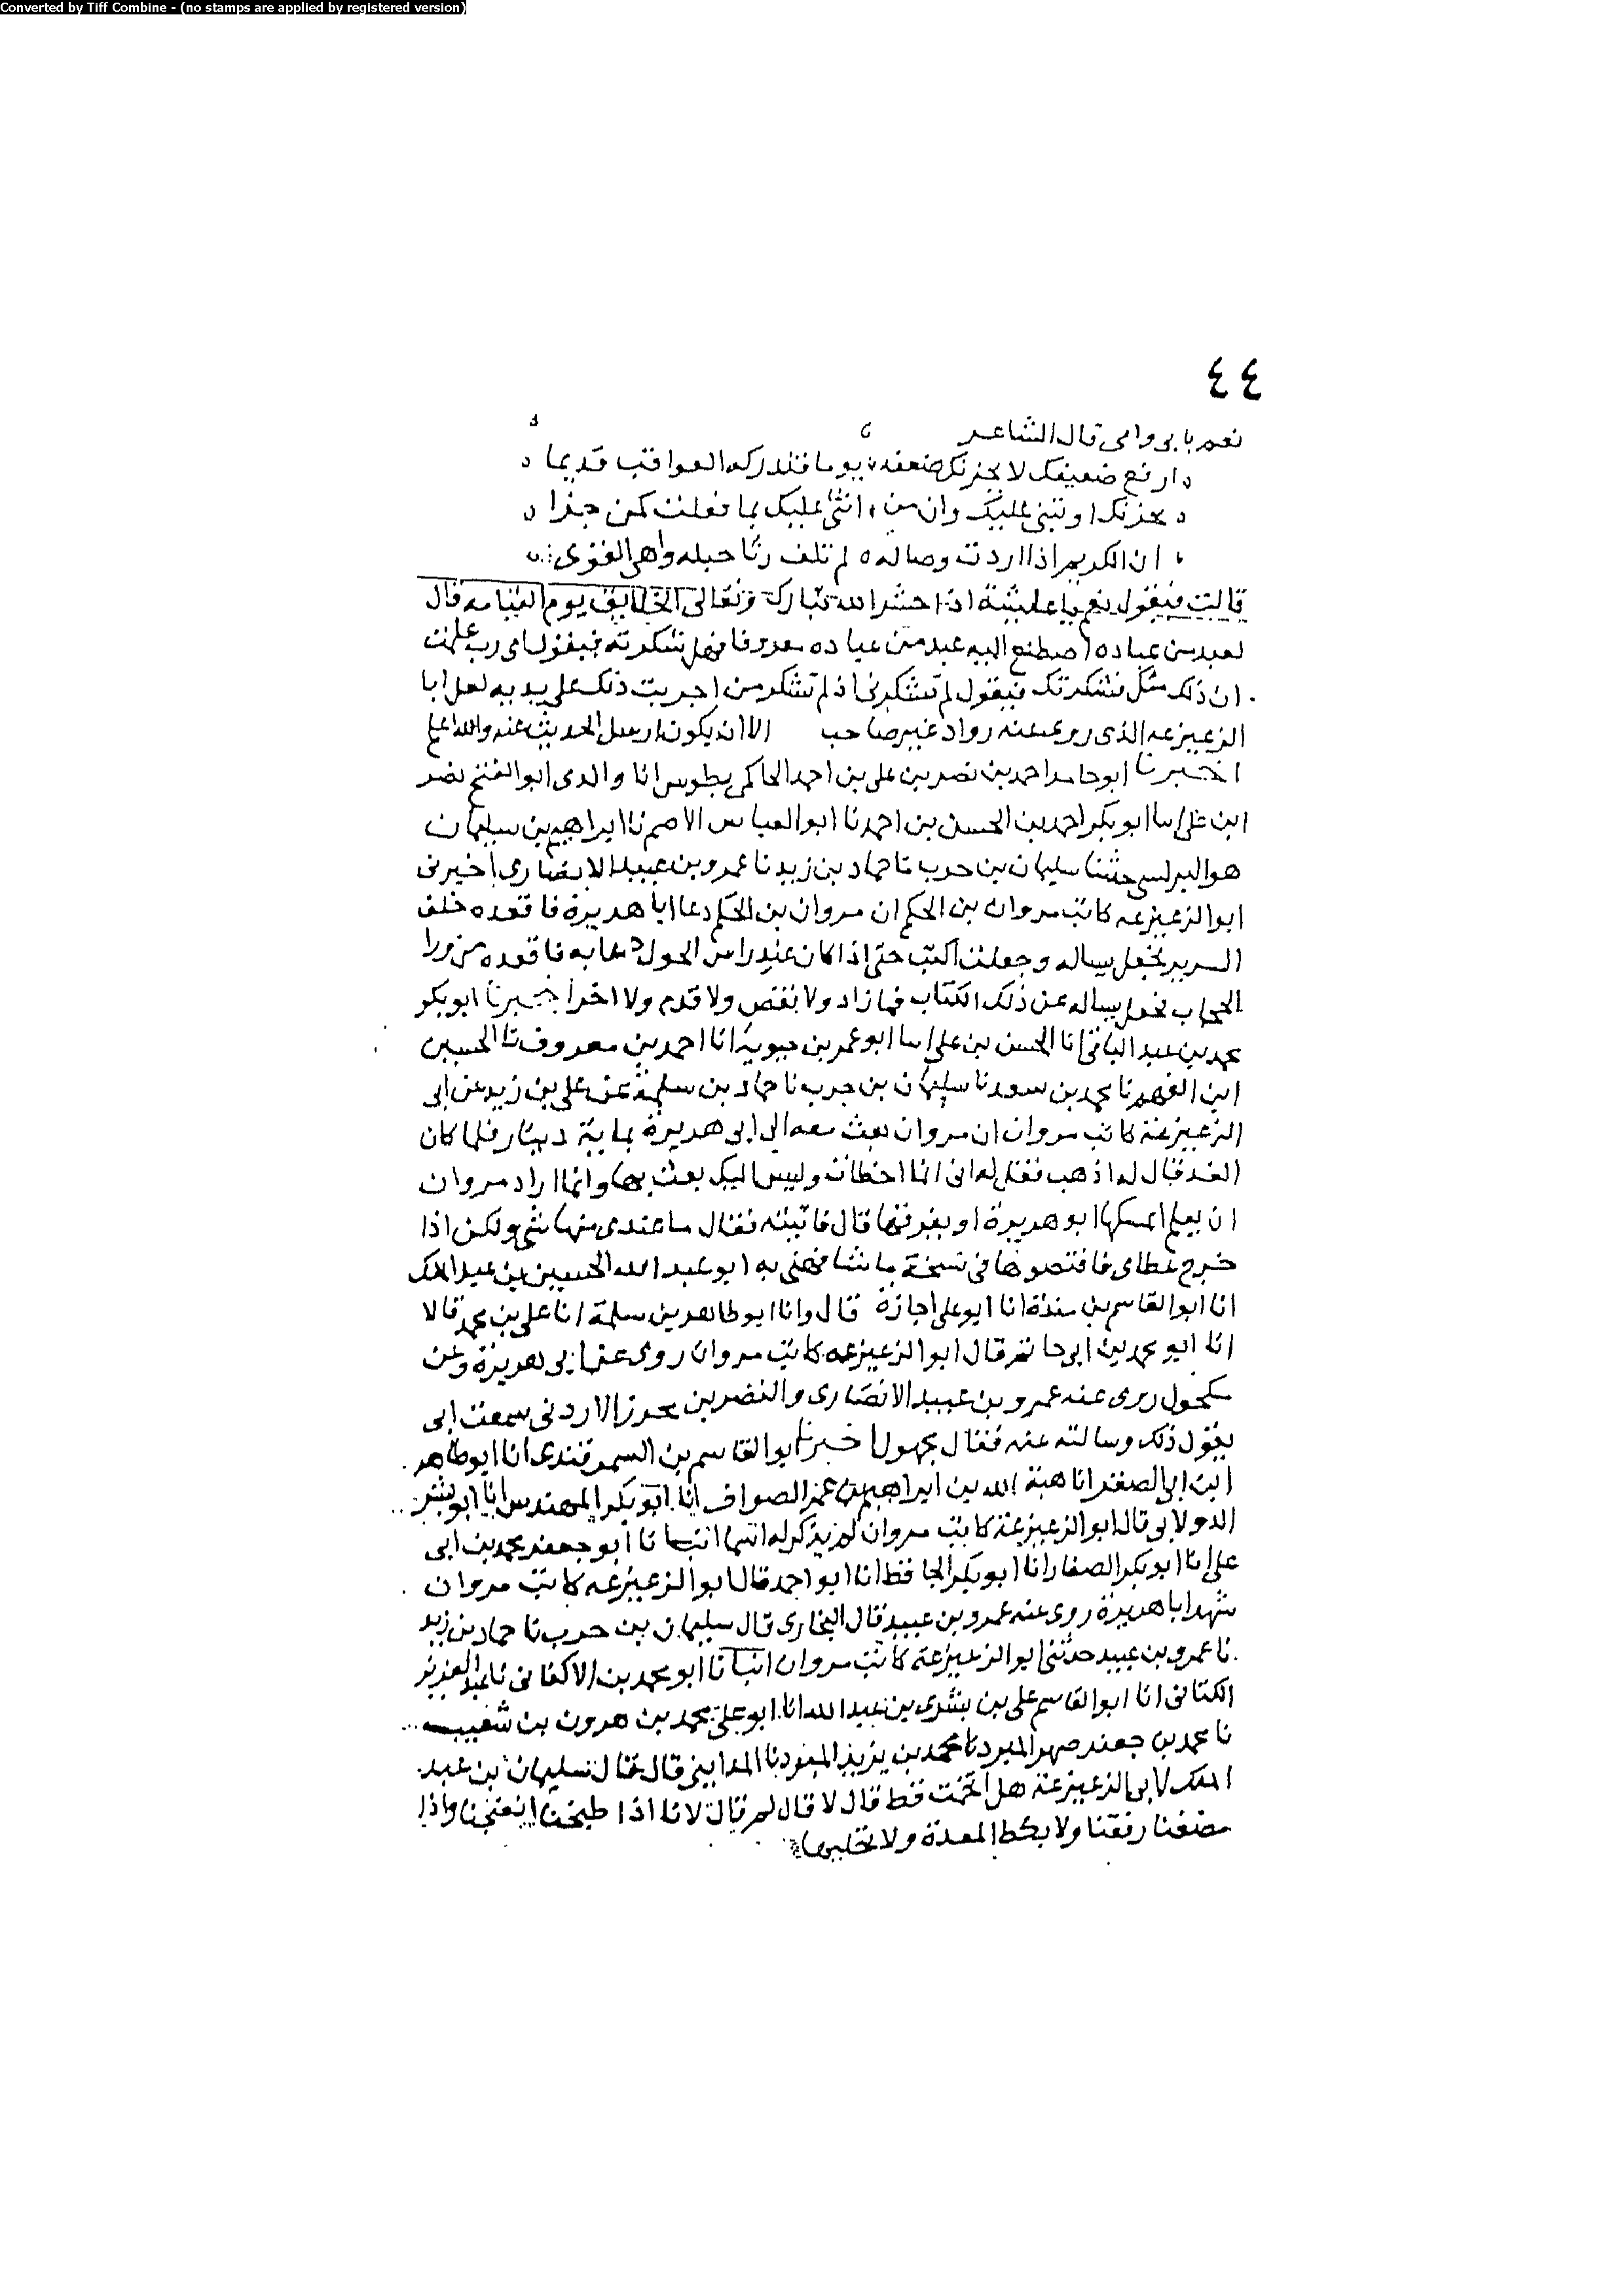 Converted by Tiff Combine - (no stamps are applied by registered version)
٤٤
نعم بابى وامى قال الشاعر
ارفع ضعيفك لا يحزنك ضعفه يوما فتدركه العواقب قد يما
يجزيك او تثنى عليك وان من اثنى عليك بما فعلت كمن جزا
ان الكريم اذا اردت وصاله لم تلف رثا حبله واهى القوى
قالت فيقول نعم يا عايشة اذا حشر الله تبارك وتعالى الخلايق يوم القيامه قال
لعبد من عباده اصطنع اليه عبد من عباده معروفا فهل شكرته فيقول اى رب علمت
ان ذلك منك فشكرتك فيقول لم تشكرنى اذ لم تشكر من اجريت ذلك على يديه لعل ابا
الزعيزعه الذى روى عنه رواد غير صاحب الا ان يكون ارسل الحديث عنه والله اعلم
اخبرنا ابو حامد احمد بن نصر بن على بن احمد الحاكمى بطوس انا والدى ابو الفتح نصر
ابن على انا ابو بكر احمد بن الحسن بن احمد نا ابو العباس الاصم نا ابراهيم بن سليمان
هو البرلسى حدثنا سليمان بن حرب نا حماد بن زيد نا عمرو بن عبيد الانصارى اخبرنى
ابو الزعيزعه كاتب مروان بن الحكم ان مروان بن الحكم دعا ابا هريرة فاقعده خلف
السرير فجعل يساله وجعلت اكتب حتى اذا كان عند راس الحول دعا به فاقعده من ورا
الحجاب فجعل يساله عن ذلك الكتاب فما زاد ولا نقص ولا قدم ولا اخر اخبرنا ابو بكر
محمد بن عبد الباقى انا الحسن بن على انا ابو عمر بن حيوية انا احمد بن معروف نا الحسين
ابن الفهم نا محمد بن سعد نا سليمان بن حرب نا حماد بن سلمة عن على بن زيد عن ابى
الزعيزعة كاتب مروان ان مروان بعث معه الى ابى هريرة بماية دينار فلما كان
الغد قال له اذهب فقل له انى انما اخطات وليس اليك بعث بها وانما اراد مروان
ان يعلم ايمسكها ابو هريرة او يفرقها قال فاتيته فقال ما عندى منها شى ولكن اذا
خرج عطاى فاقتصوها فى نسخة ما شافهنى به ابو عبد الله الحسين بن عبد الملك
انا ابو القاسم بن مندة انا ابو على اجازة قال وانا ابو طاهر بن سلمة انا على بن محمد قالا
انا ابو محمد بن ابى حاتم قال ابو الزعيزعه كاتب مروان روى عن ابى هريرة وعن
مكحول روى عنه عمرو بن عبيد الانصارى والنضر بن محرز الاردنى سمعت ابى
يقول ذلك وسالته عنه فقال مجهول اخبرنا ابو القاسم بن السمرقندى انا ابو طاهر
ابن ابى الصقر انا هبة الله بن ابراهيم بن عمر الصواف انا ابو بكر المهندس انا ابو بشر
الدولابى قال ابو الزعيزعة كاتب مروان لم يذكر له اسما انبانا ابو جعفر محمد بن ابى
على انا ابو بكر الصفار انا ابو بكر الحافظ انا ابو احمد قال ابو الزعيزعه كاتب مروان
شهد ابا هريرة روى عنه عمرو بن عبيد قال البخارى قال سليمان بن حرب نا حماد بن زيد
نا عمرو بن عبيد حدثنى ابو الزعيزعة كاتب مروان انبانا ابو محمد بن الاكفانى نا عبد العزيز
الكتانى انا ابو القاسم على بن بشرى بن عبد الله انا ابو على محمد بن هرون بن شعيب
نا محمد بن جعفر صهر المبرد نا محمد بن يزيد المبرد نا المداينى قال قال سليمان بن عبد
الملك لابى الزعيزعة هل اتخمت قط قال لا قال لم قال لانا اذا طبخنا انضجنا واذا
مضغنا رفقنا ولا نكظ المعدة ولا نخليها